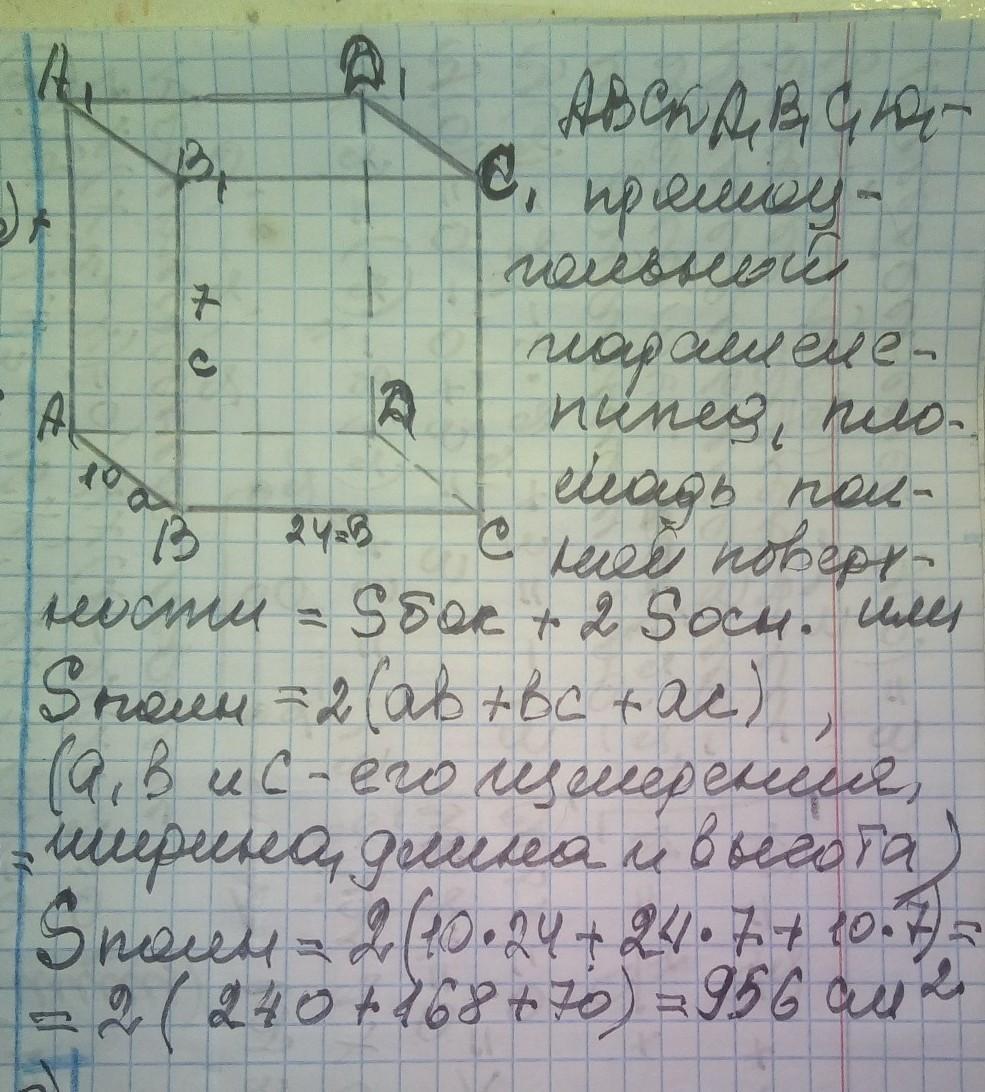 A₁ D₁
B₁ C₁
7
c
A D
10 a
B 24=в C
ABCК A₁B₁C₁Ю₁-
прямоу-
гольный
параллеле-
пипед, пло-
щадь пол-
ной поверх-
ности = Sбок + 2 Sосн. или
Sполн = 2(ab + bc + ac) ,
(a, в и с - его измерения,
= ширина, длина и высота)
Sполн = 2(10·24 + 24·7 + 10·7) =
= 2 ( 240 + 168 + 70) = 956 см².